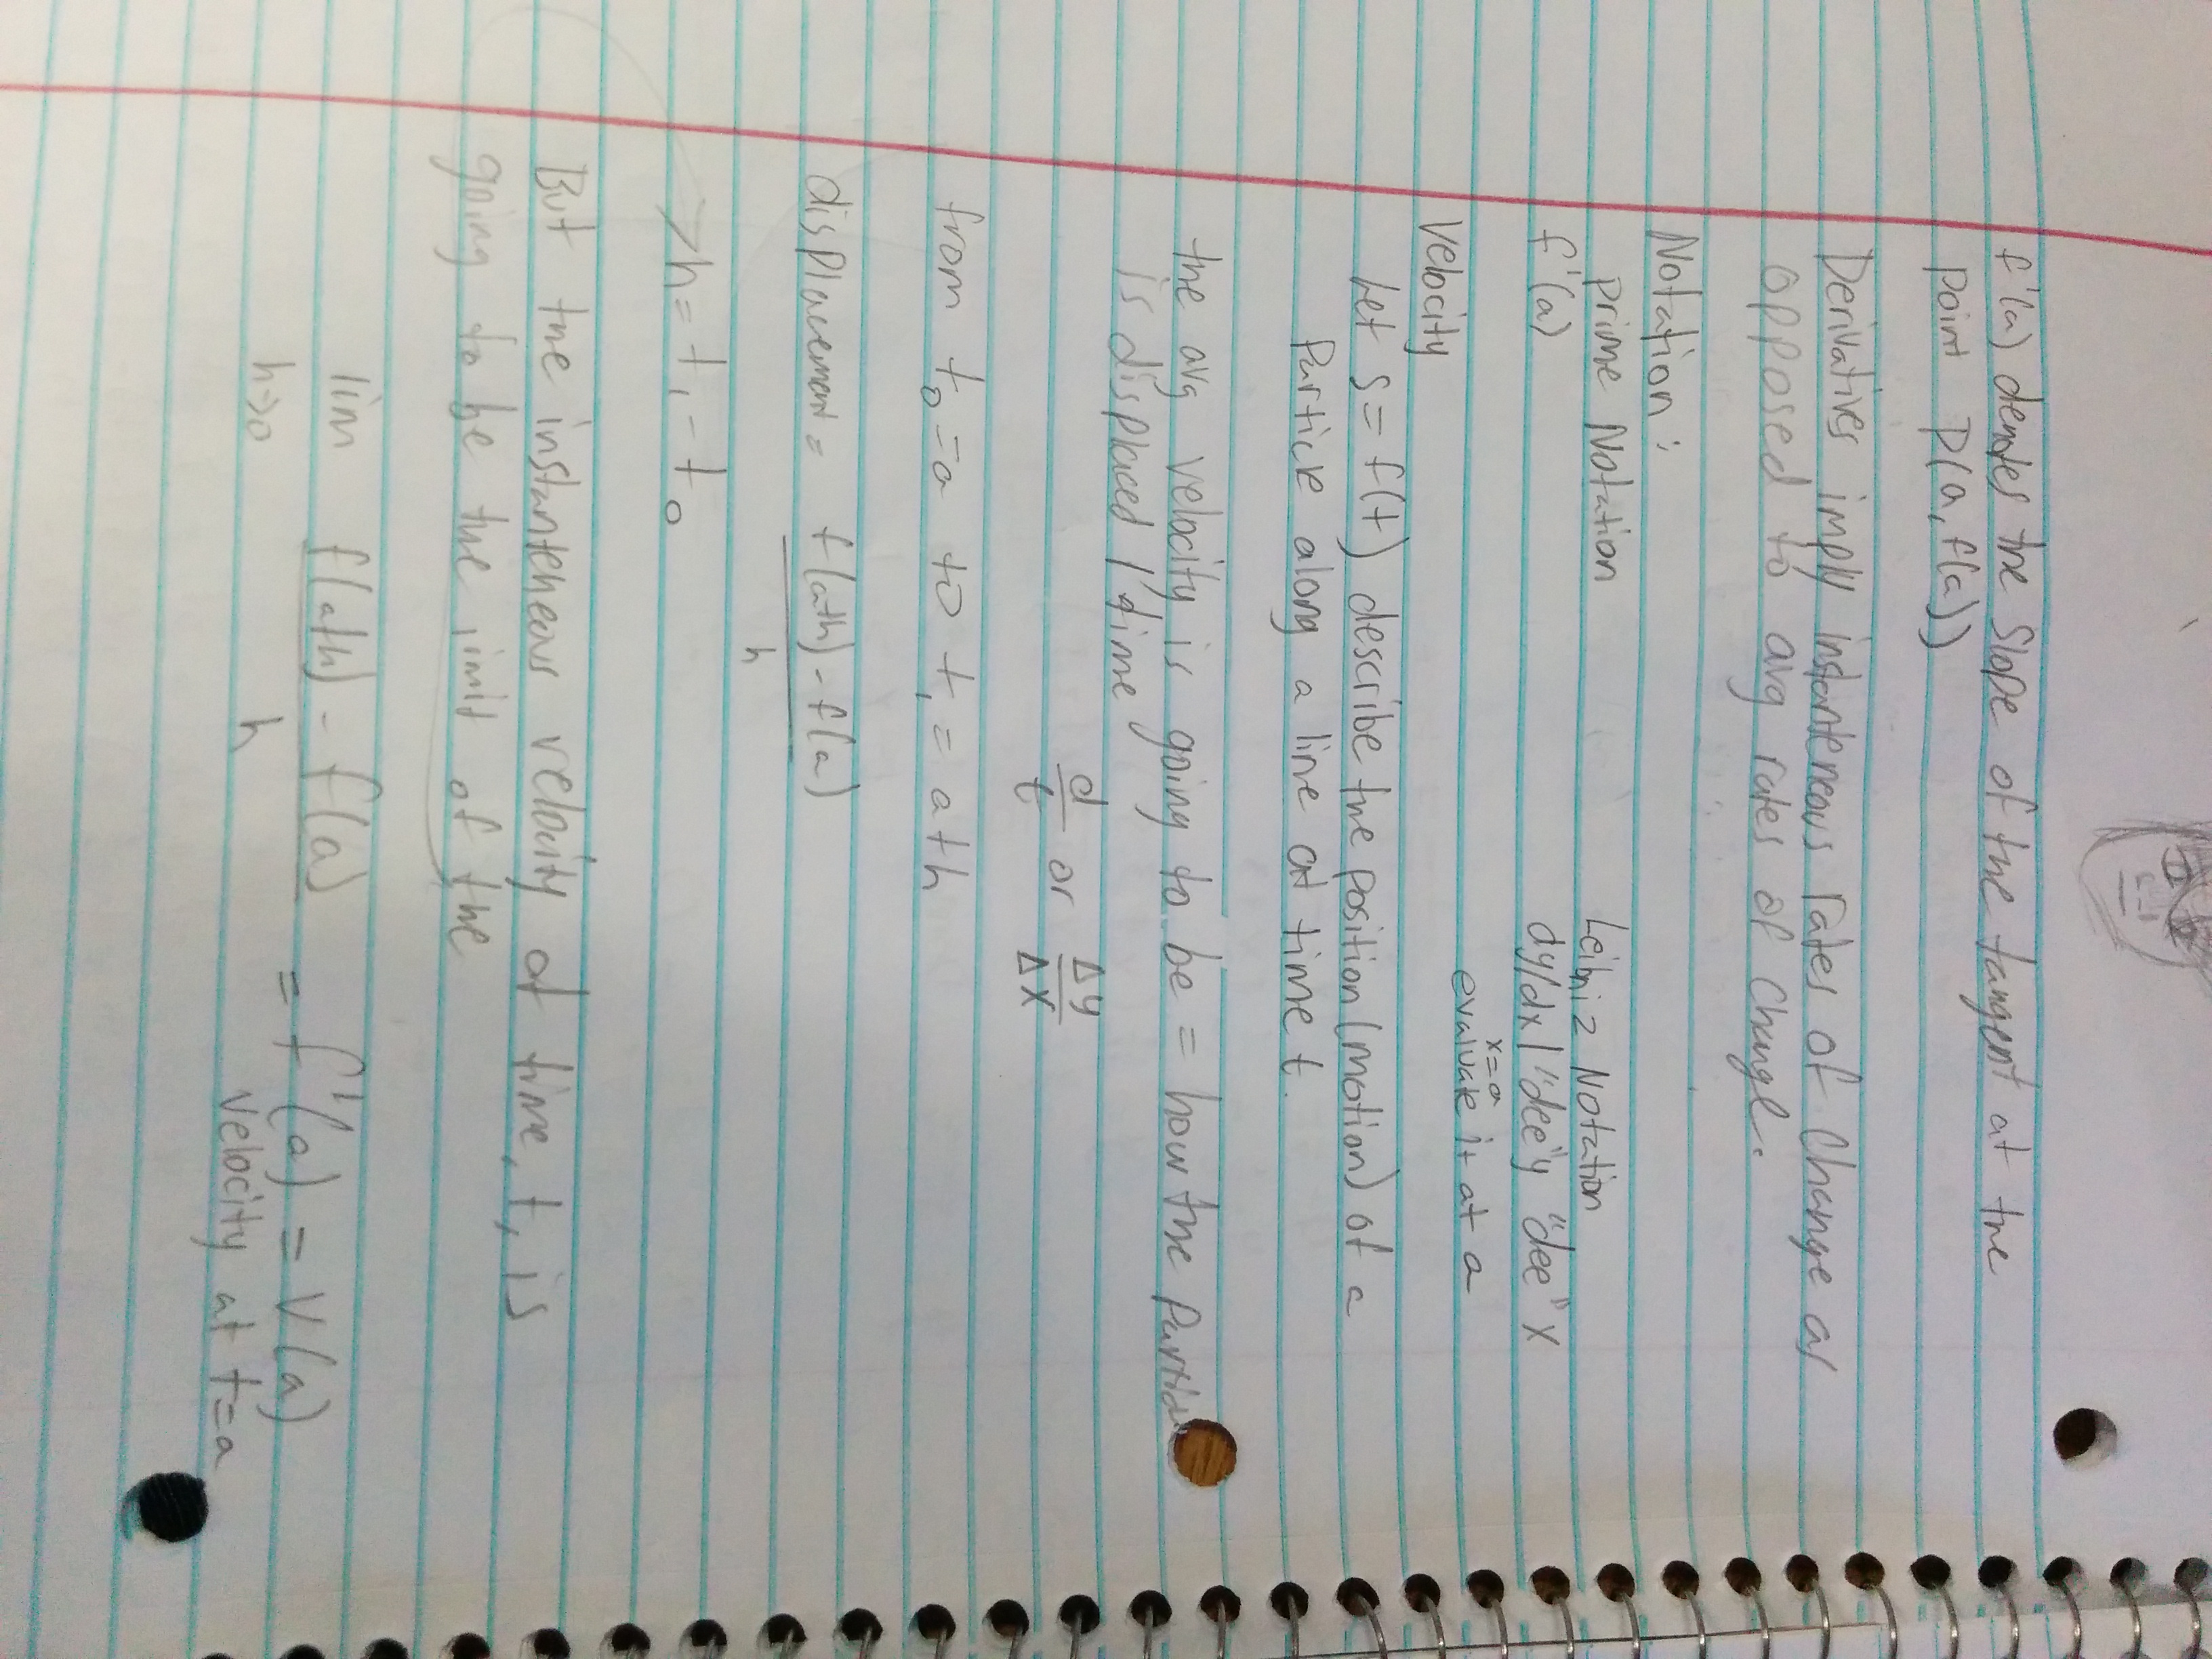 f'(a) denotes the slope of the tangent at the
point P(a, f(a))
Derivatives imply instanteneous rates of change as
opposed to avg rates of change.
Notation:
prime Notation Leibniz Notation
f'(a) dy/dx | "dee" y "dee" x
x=a
evaluate it at a
Velocity
Let s = f(t) describe the position (motion) of a
Particle along a line at time t.
the avg velocity is going to be = how the particle
is displaced / time
d/t or Δy/Δx
from t₀ = a to t₁ = a+h
displacement = f(a+h) - f(a)
h
> h = t₁ - t₀
But the instanteneous velocity at time, t, is
going to be the limit of the
lim f(a+h) - f(a) = f'(a) = V(a)
h→0 h velocity at t=a